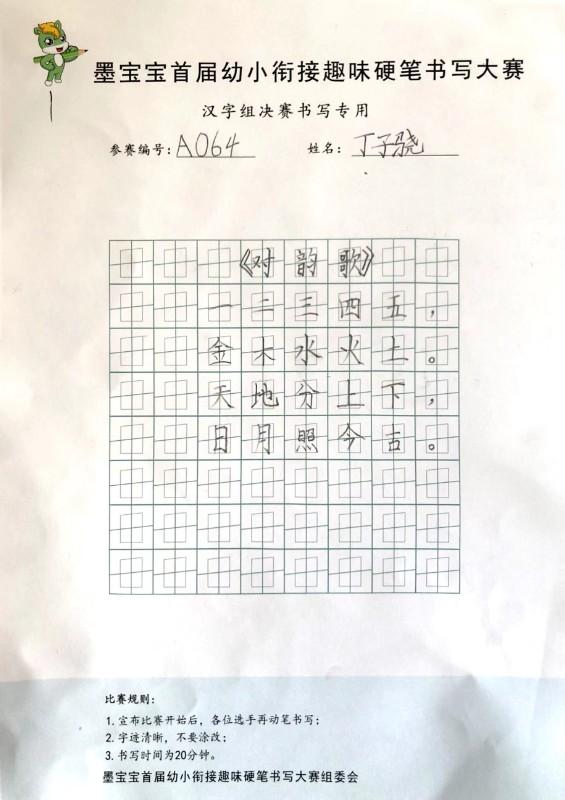 墨宝宝首届幼小衔接趣味硬笔书写大赛
汉字组决赛书写专用
参赛编号：A064 姓名：丁子骁
《对韵歌》
一二三四五，
金木水火土。
天地分上下，
日月照今古。
比赛规则：
1.宣布比赛开始后，各位选手再动笔书写；
2.字迹清晰，不要涂改；
3.书写时间为20分钟。
墨宝宝首届幼小衔接趣味硬笔书写大赛组委会